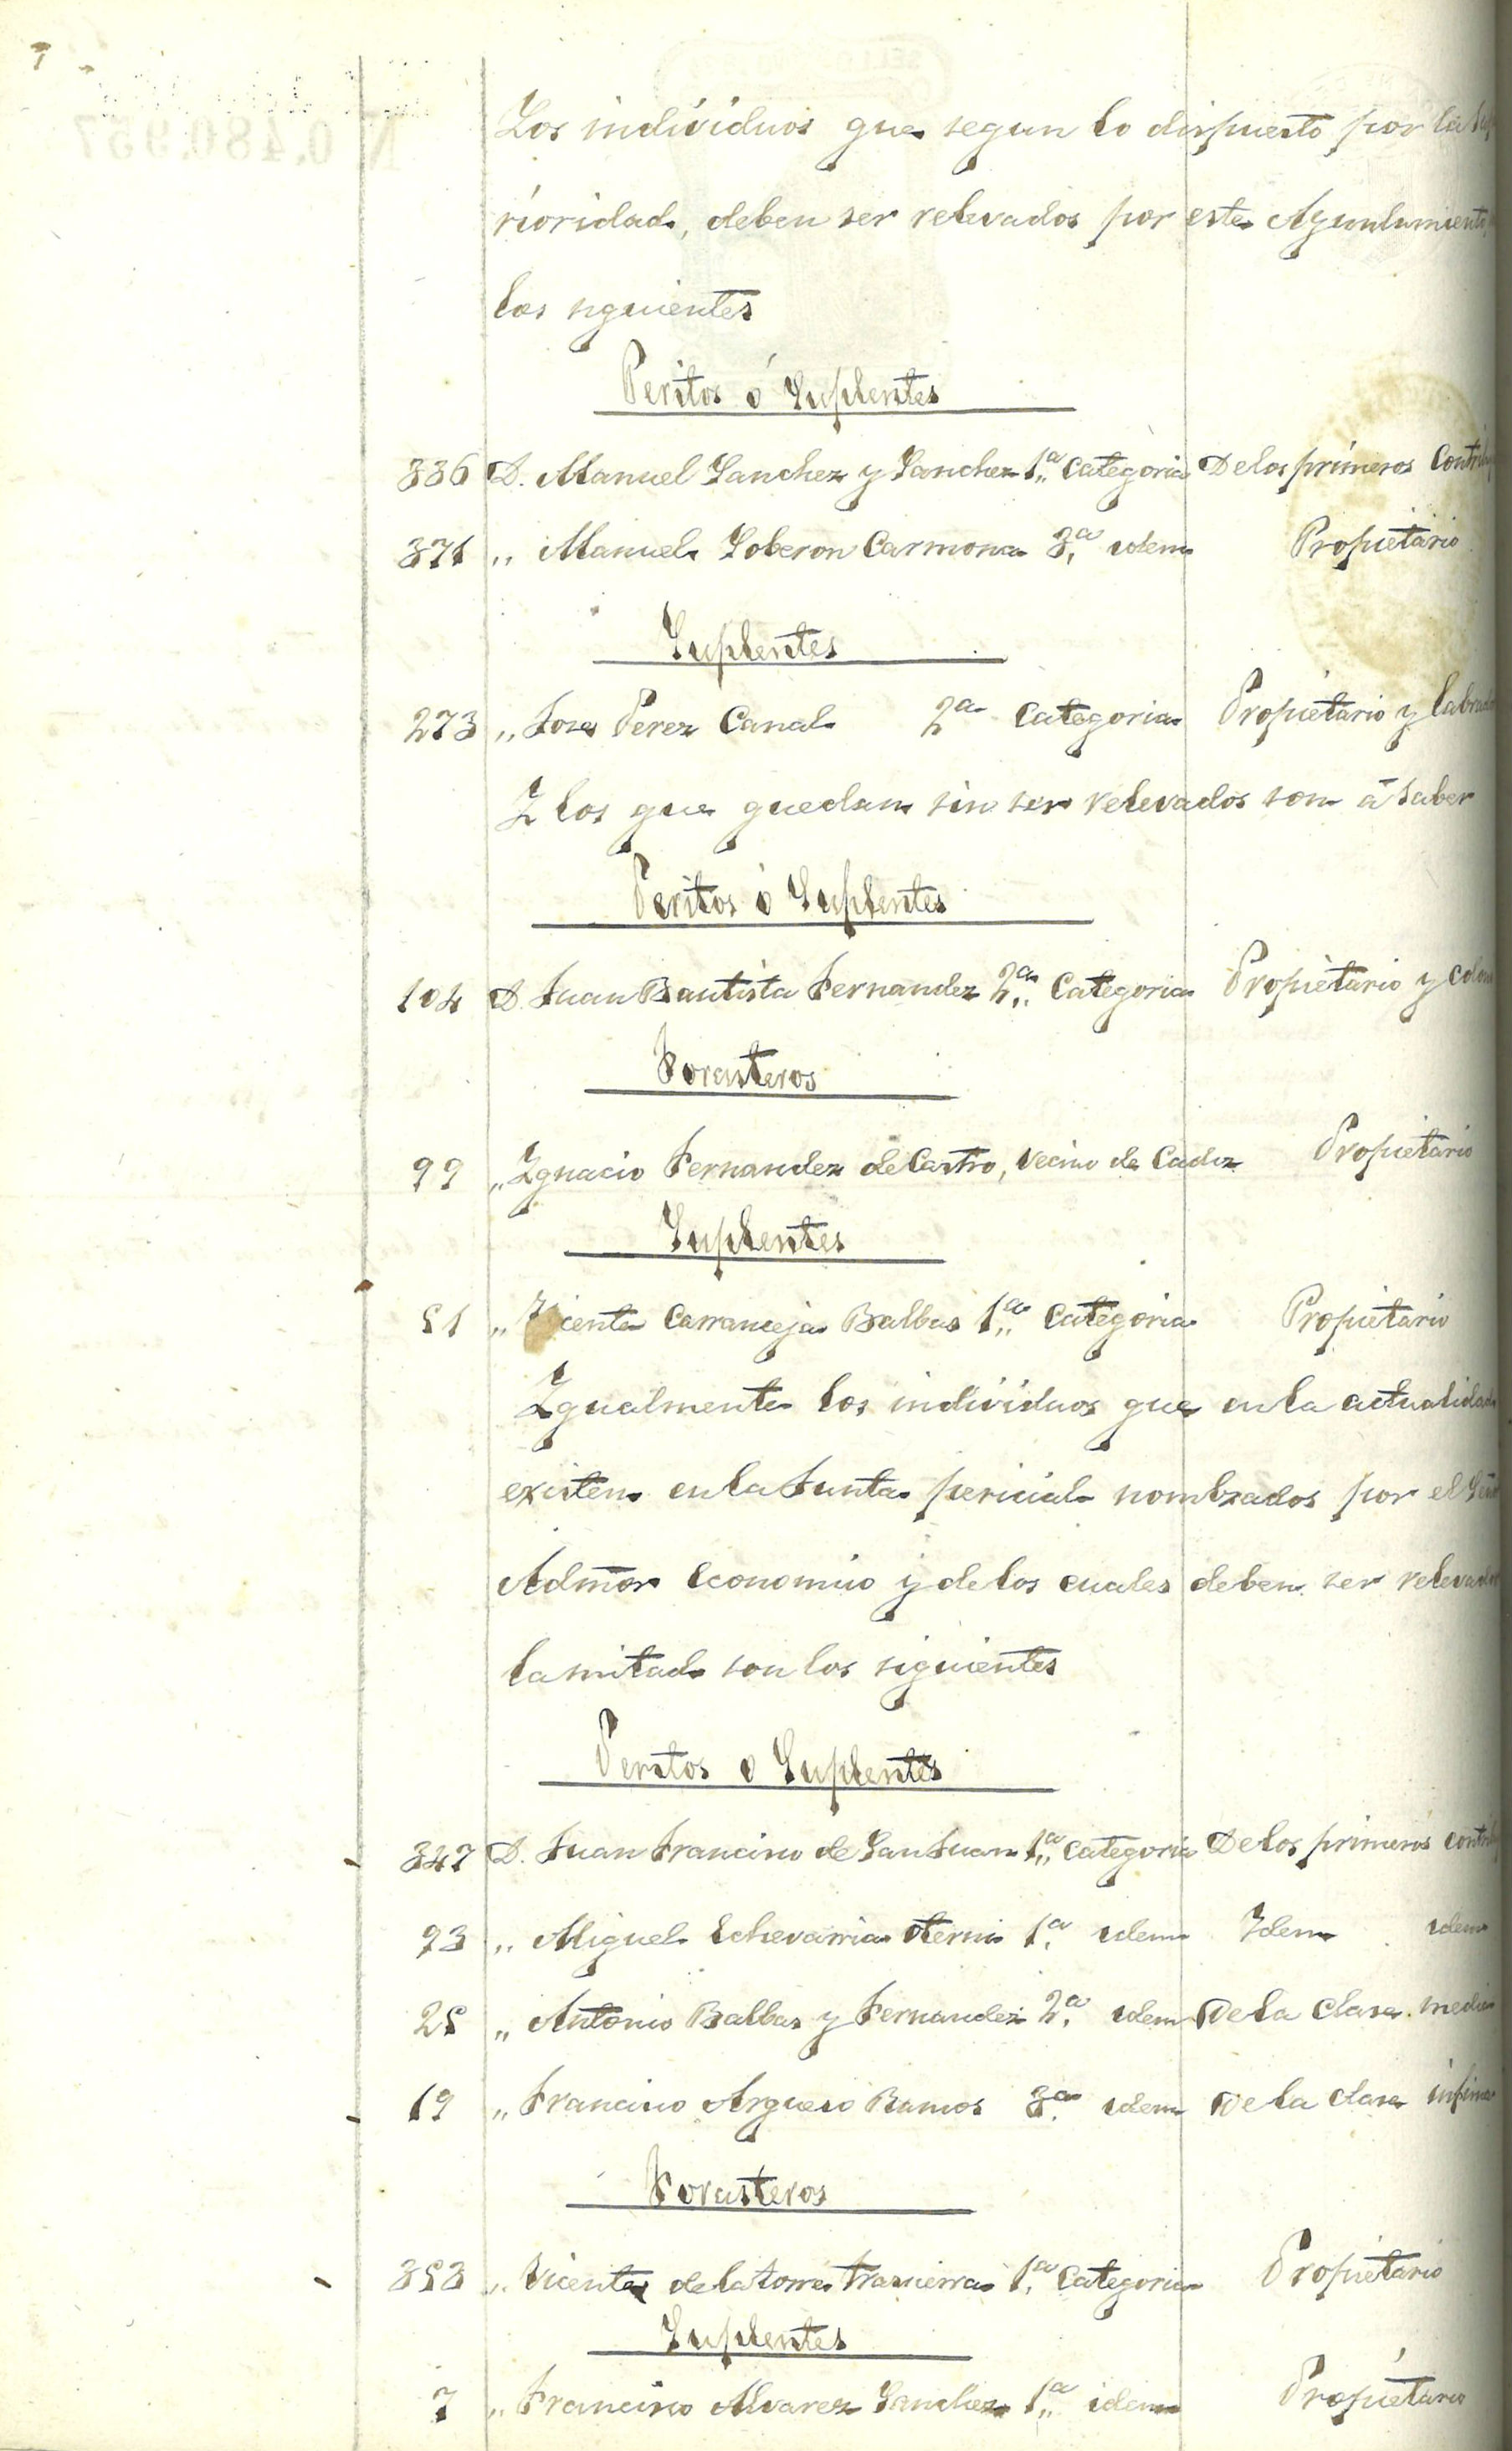 Los individuos que segun lo dispuesto por la
rioridad, deben ser relevados por este Ayuntamiento,
los siguientes
Peritos ó Suplentes
336 D. Manuel Sanchez y Sanchez 1.ª Categoria De los primeros Contrib
371 " Manuel Soberon Carmona 3.ª idem Propietario
Suplentes
273 " Jose Perez Canal 2ª Categoria Propietario y labrador
Y los que quedan sin ser relevados son á saber
Peritos ó Suplentes
104 D. Juan Bautista Fernandez 2.ª Categoria Propietario y colono
Forasteros
99 " Ygnacio Fernandez de Castro, vecino de Cadiz Propietario
Suplentes
51 " Vicente Carranceja Balbas 1.ª Categoria Propietario
Ygualmente los individuos que en la actualidad
existen en la Junta pericial nombrados por el Señor
Admor economico y de los cuales deben ser relevados
la mitad son los siguientes
Peritos o Suplentes
347 D. Juan Francisco de San Juan 1.ª Categoria De los primeros contrib
93 " Miguel Echevarria 1.ª idem Ydem idem
25 " Antonio Balbas y Fernandez 2.ª idem De la clase media
19 " Francisco Argueso Ramos 3.ª idem De la clase infima
Forasteros
353 " Vicente de la Torre Trassierra 1.ª Categoria Propietario
Suplentes
7 " Francisco Alvarez Sanchez 1.ª idem Propietario